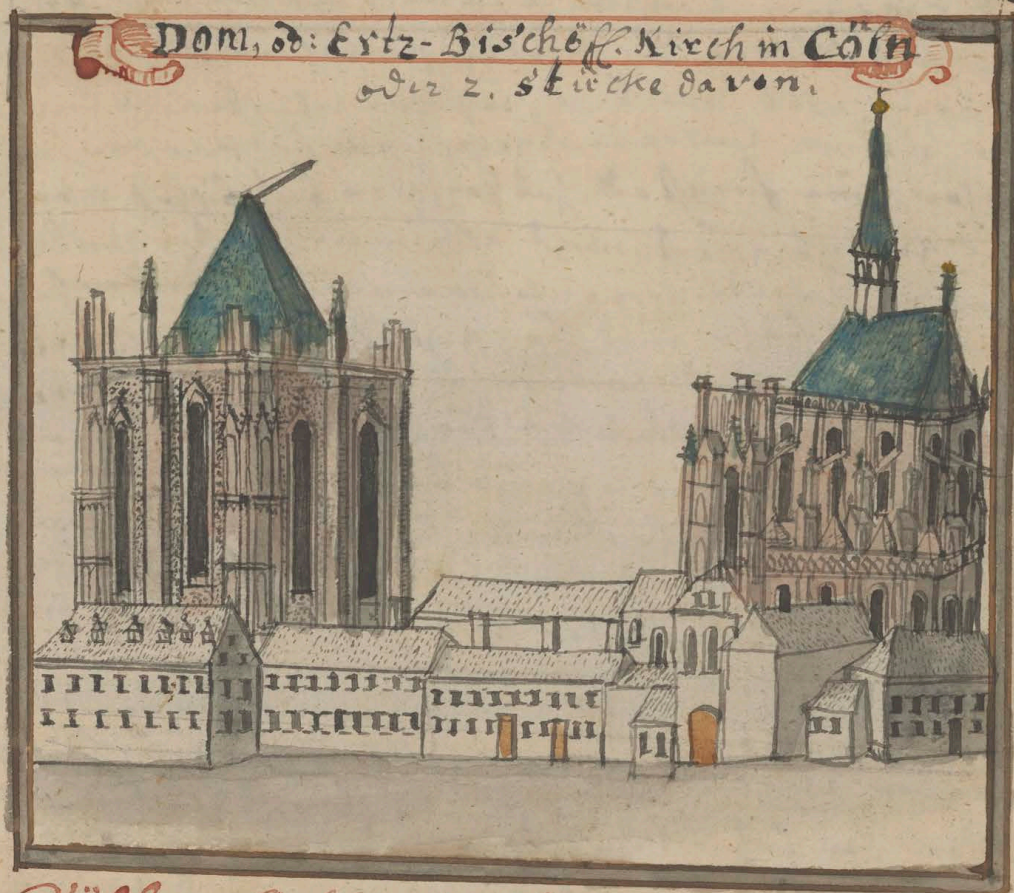 Dom, od: Ertz-Bischöffl. Kirch in Cöln
oder 2. stücke davon.